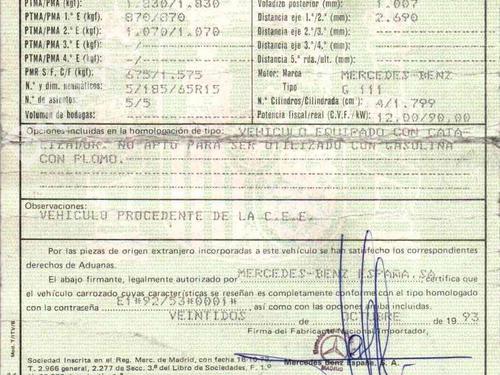 PTMA/PMA (kgf): 1.830/1.830 Voladizo posterior (mm): 1.007
PTMA/PMA 1.° E (kgf): 870/870 Distancia eje 1.°/2.° (mm): 2.690
PTMA/PMA 2.° E (kgf): 1.070/1.070 Distancia eje 2.°/3.° (mm):
PTMA/PMA 3.° E (kgf): Distancia eje 3.°/4.° (mm):
PTMA/PMA 4.° E (kgf): Distancia 5.ª rda./alt. (mm):
PMR S/F, C/F (kgf): 675/1.575 Motor: Marca MERCEDES-BENZ
N.° y dim. neumáticos: 5/185/65R15 Tipo G 111
N.° de asientos: 5/5 N.° Cilindros/Cilindrada (cm³): 4/1.799
Volumen de bodegas: Potencia fiscal/real (C.V.F./kW): 12,00/90,00
Opciones incluidas en la homologación de tipo: VEHICULO EQUIPADO CON CATA-
LIZADOR. NO APTO PARA SER UTILIZADO CON GASOLINA
CON PLOMO.
Observaciones:
VEHICULO PROCEDENTE DE LA C.E.E.
Por las piezas de origen extranjero incorporadas a este vehículo se han satisfecho los correspondientes
derechos de Aduanas.
El abajo firmante, legalmente autorizado por MERCEDES-BENZ ESPAÑA,SA certifica que
el vehículo carrozado cuyas características se reseñan es completamente conforme con el tipo homologado
con la contraseña E1*92/53*0001* , así como con las opciones más arriba incluidas.
VEINTIDOS de OCTUBRE de 19 93
Firma del Fabricante Nacional/Importador,
Sociedad Inscrita en el Reg. Merc. de Madrid, con fecha Mercedes Benz España, S. A.
T. 2.966 general, 2.277 de Secc. 3.ª del Libro de Sociedades, F. 1.°